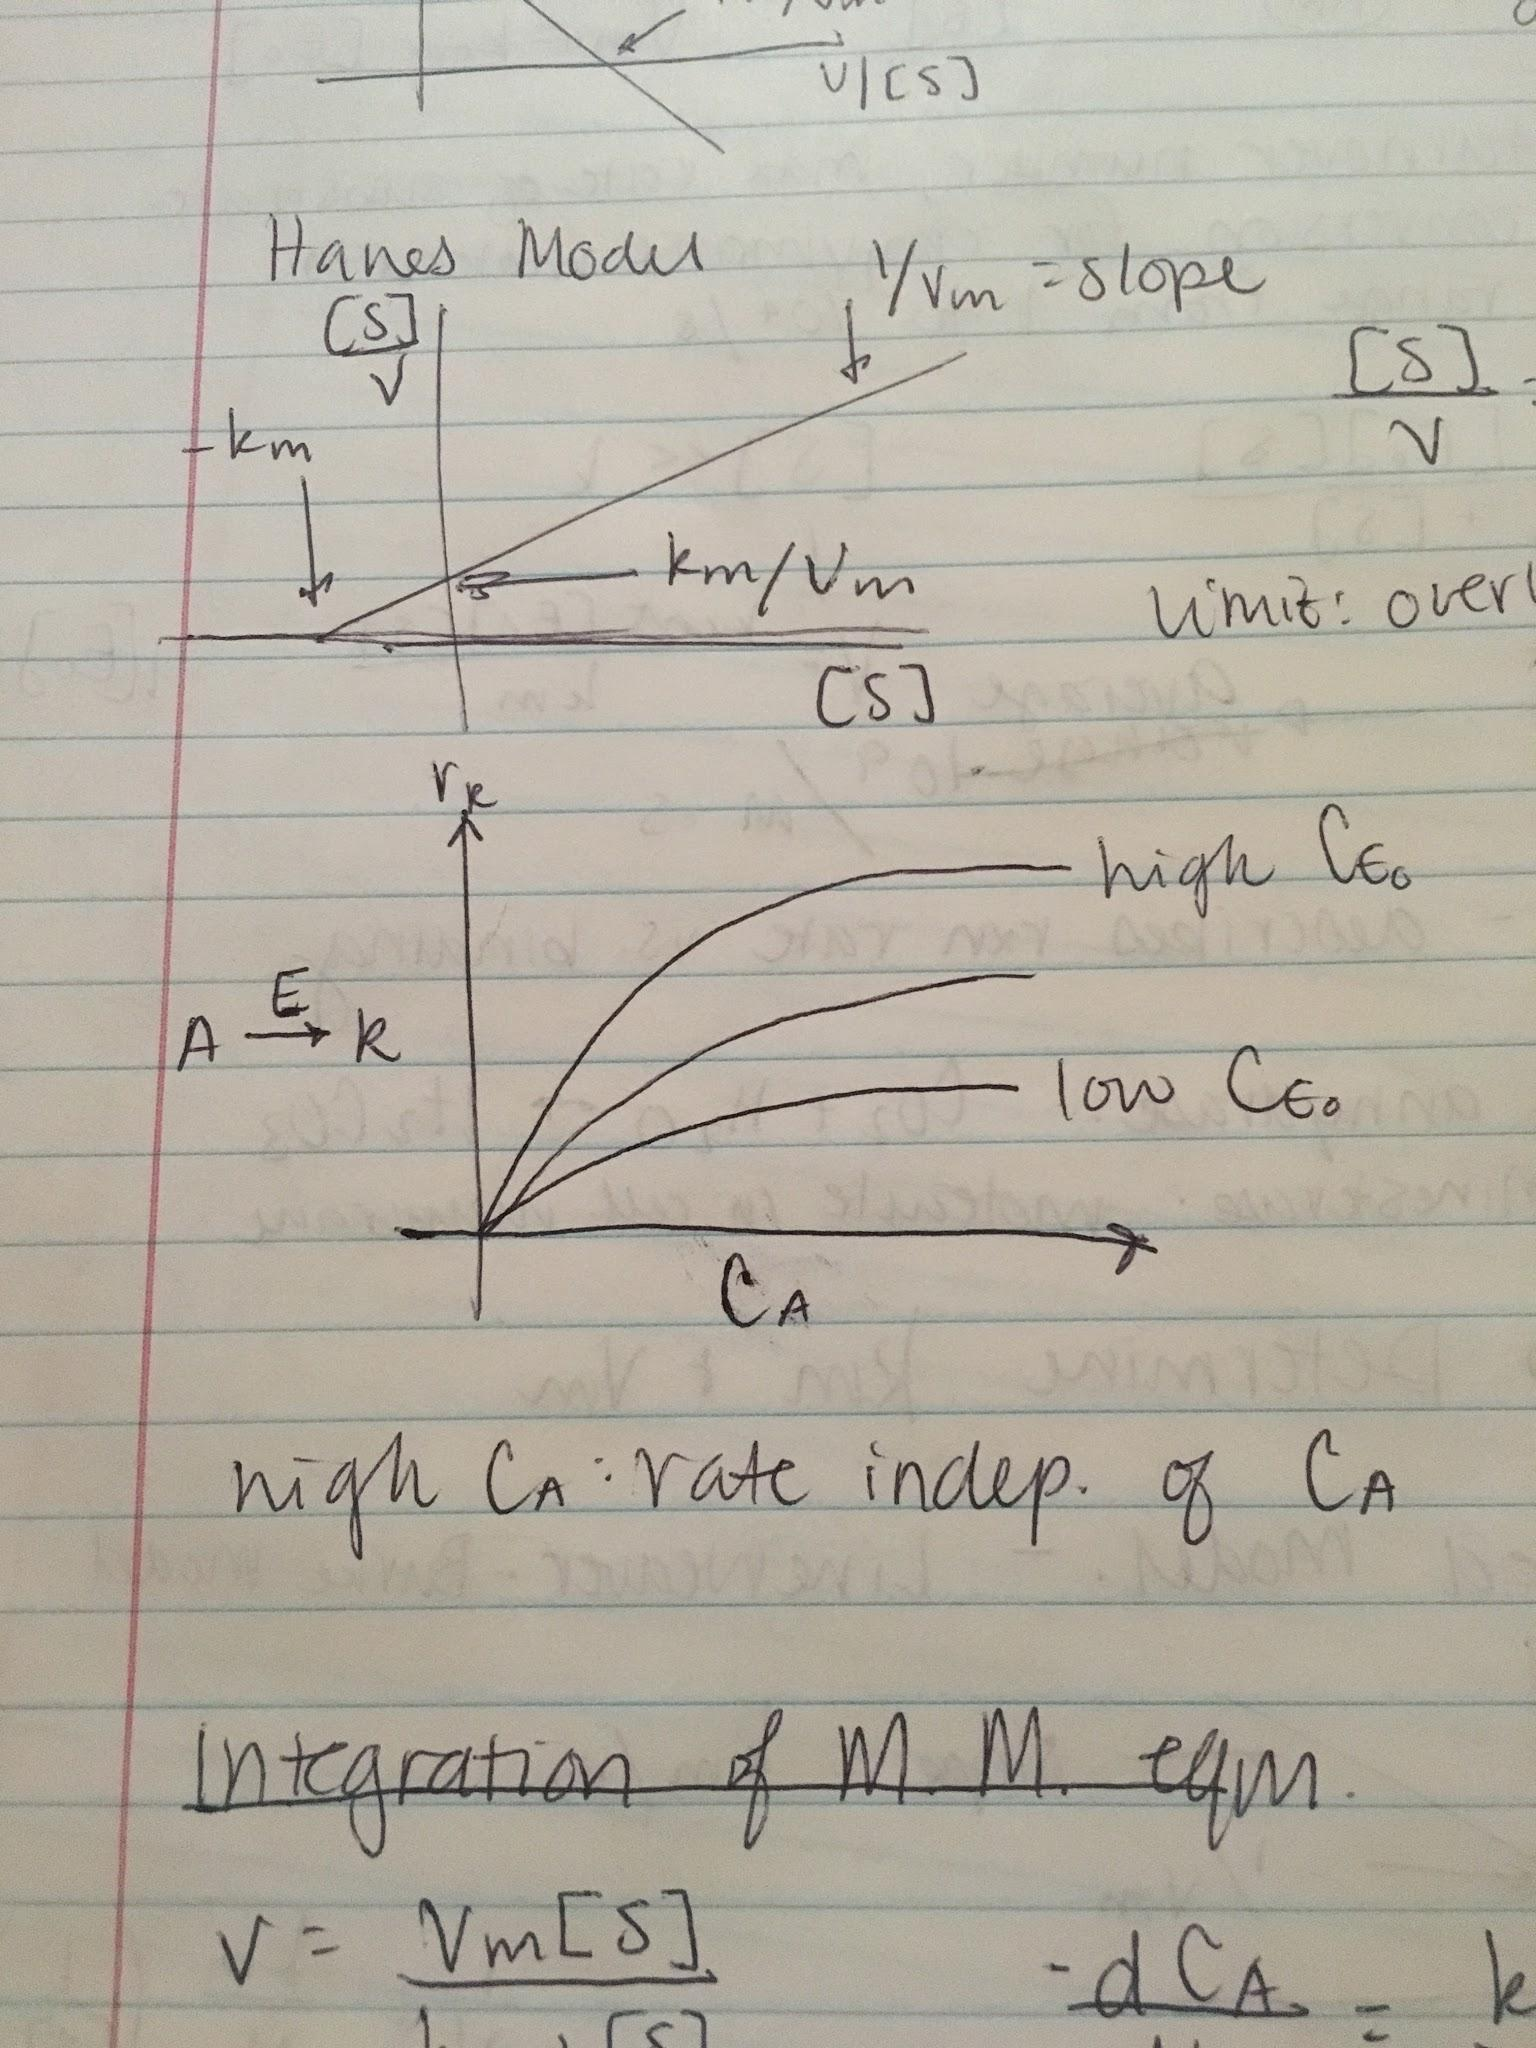 V/[S]
Hanes Model
1/Vm = slope
[S]/V
[S]/V =
-km
km/Vm
limit:
[S]
rR
high CE0
A E→ R
low CE0
CA
high CA: rate indep. of CA
Integration of M.M. eqn.
V = Vm[S]
-dCA = k
[S]